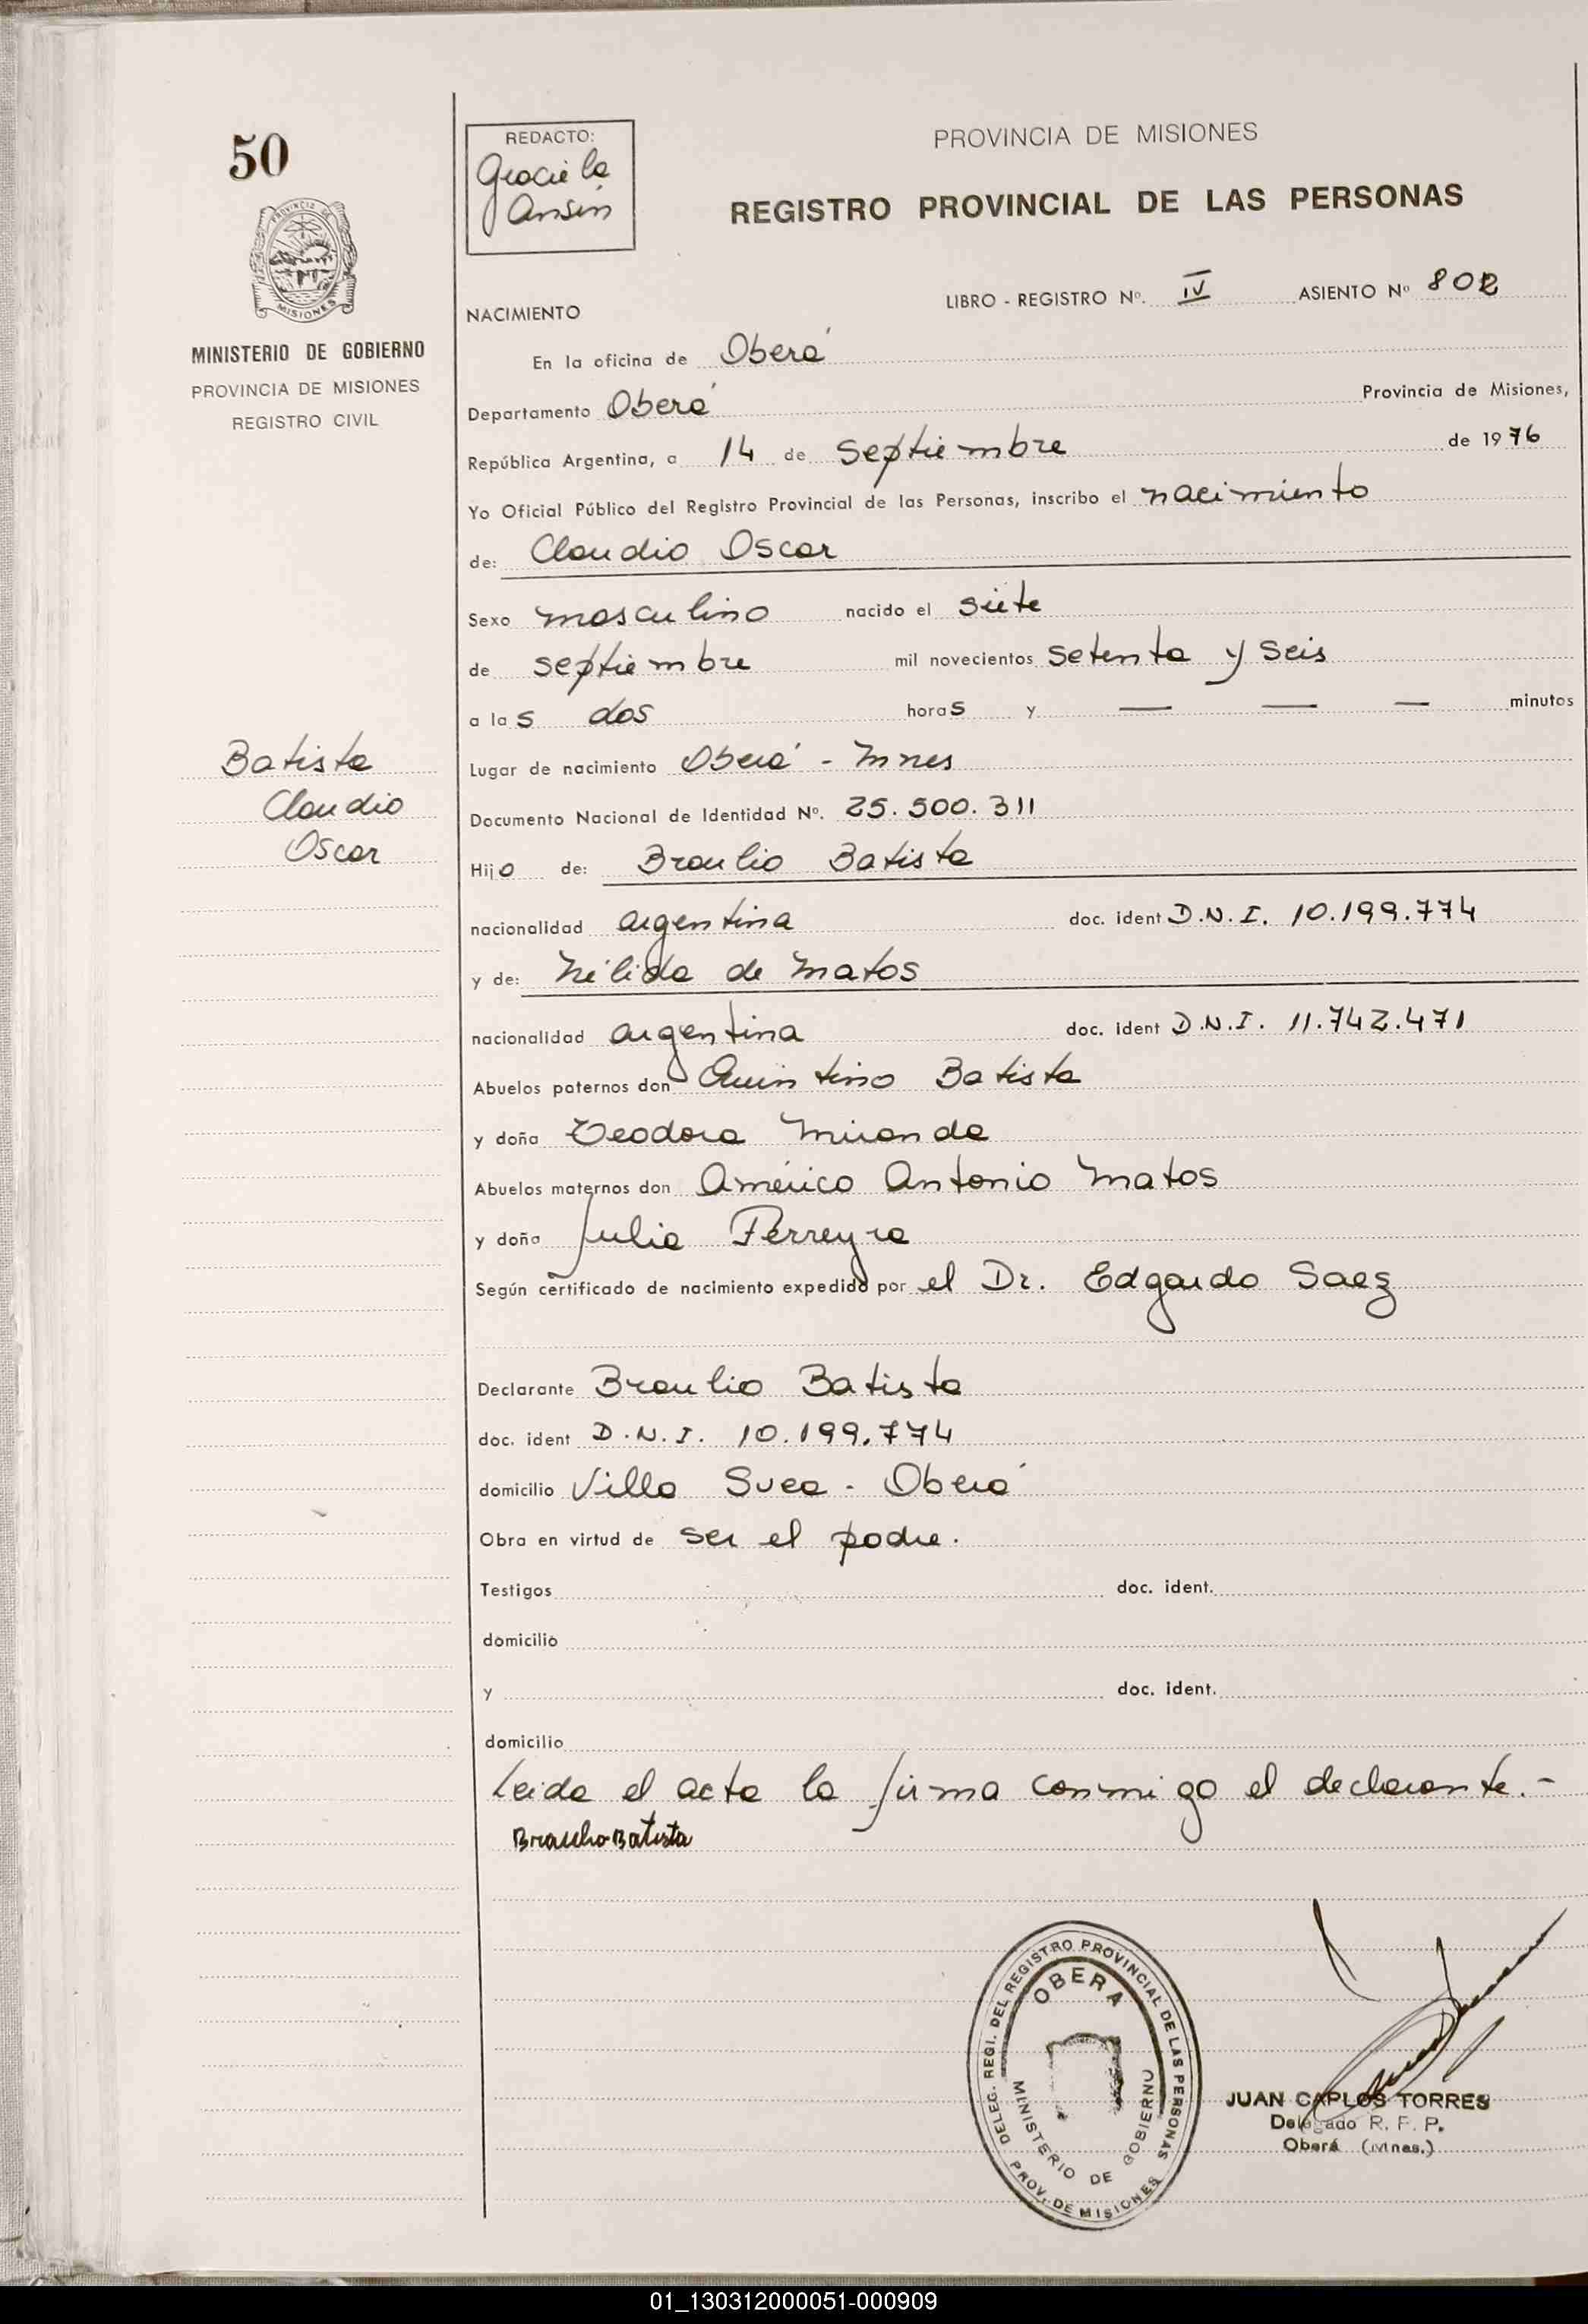 50
REDACTO:
Graciela
Ansin
PROVINCIA DE MISIONES
REGISTRO PROVINCIAL DE LAS PERSONAS
PROVINCIA DE
MISIONES
MINISTERIO DE GOBIERNO
PROVINCIA DE MISIONES
REGISTRO CIVIL
NACIMIENTO
LIBRO - REGISTRO Nº. IV ASIENTO Nº 802
En la oficina de Oberá
Departamento Oberá Provincia de Misiones,
República Argentina, a 14 de Septiembre de 1976
Yo Oficial Público del Registro Provincial de las Personas, inscribo el nacimiento
de: Claudio Oscar
Sexo masculino nacido el siete
de septiembre mil novecientos setenta y seis
a las dos horas y — — — minutos
Batista
Claudio
Oscar
Lugar de nacimiento Oberá - Mnes
Documento Nacional de Identidad Nº. 25.500.311
Hijo de: Braulio Batista
nacionalidad argentina doc. ident D.N.I. 10.199.774
y de: Nélida de Matos
nacionalidad argentina doc. ident D.N.I. 11.742.471
Abuelos paternos don Quintino Batista
y doña Teodora Miranda
Abuelos maternos don Américo Antonio Matos
y doña Julia Ferreyra
Según certificado de nacimiento expedido por el Dr. Edgardo Saez
Declarante Braulio Batista
doc. ident D.N.I. 10.199.774
domicilio Villa Svea - Oberá
Obra en virtud de ser el padre.
Testigos doc. ident.
domicilio
y doc. ident.
domicilio
Leida el acta la firma conmigo el declarante.-
Braulio Batista
DELEG. REGI. DEL REGISTRO PROVINCIAL DE LAS PERSONAS
OBERA
MINISTERIO DE GOBIERNO
PROV. DE MISIONES
JUAN CARLOS TORRES
Delegado R. F. P.
Oberá (Mnes.)
01_130312000051-000909